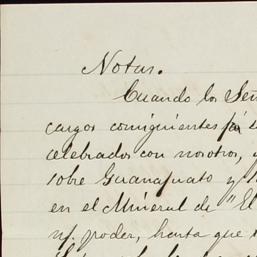 Notas.
Cuando los Señ
cargos consiguientes pa
celebrados con nosotros,
sobre Guanajuato y
en el Mineral de "El
poder, hasta que